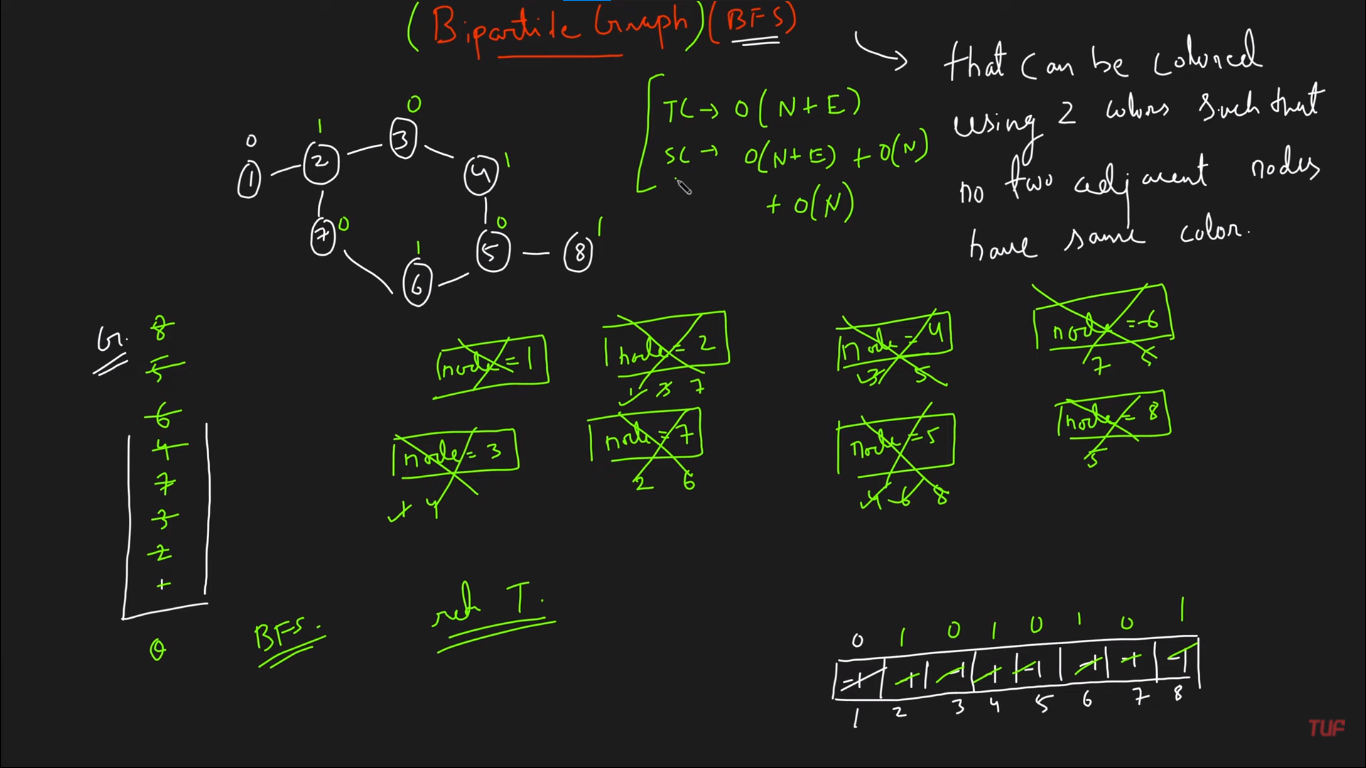 (Bipartite Graph) (BFS)
that can be colored
using 2 colors such that
no two adjacent nodes
have same color.
TC → O(N+E)
SC → O(N+E) + O(N)
+ O(N)
0 1 0 1
1 2 3 4
0 1 0 1
7 6 5 8
Gr.
8
5
6
4
7
3
2
1
Q
BFS.
node = 1
node = 2
1 3 7
node = 4
3 5
node = 6
7 5
node = 3
2 4
node = 7
2 6
node = 5
4 6 8
node = 8
5
ret T.
0 1 0 1 0 1 0 1
-1 -1 -1 -1 -1 -1 -1 -1
1 2 3 4 5 6 7 8
TUF